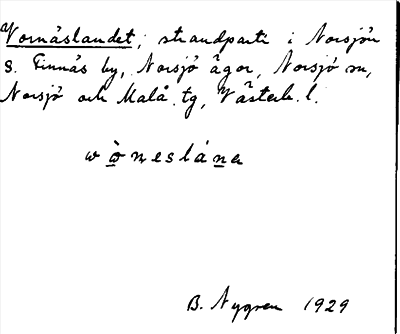 Vornäslandet, strandparti i Norsjön
S. Finnäs by, Norsjö ägor, Norsjö sn,
Norsjö och Malå tg, Västerb. l.
wò̱neslána̱
B. Nygren 1929